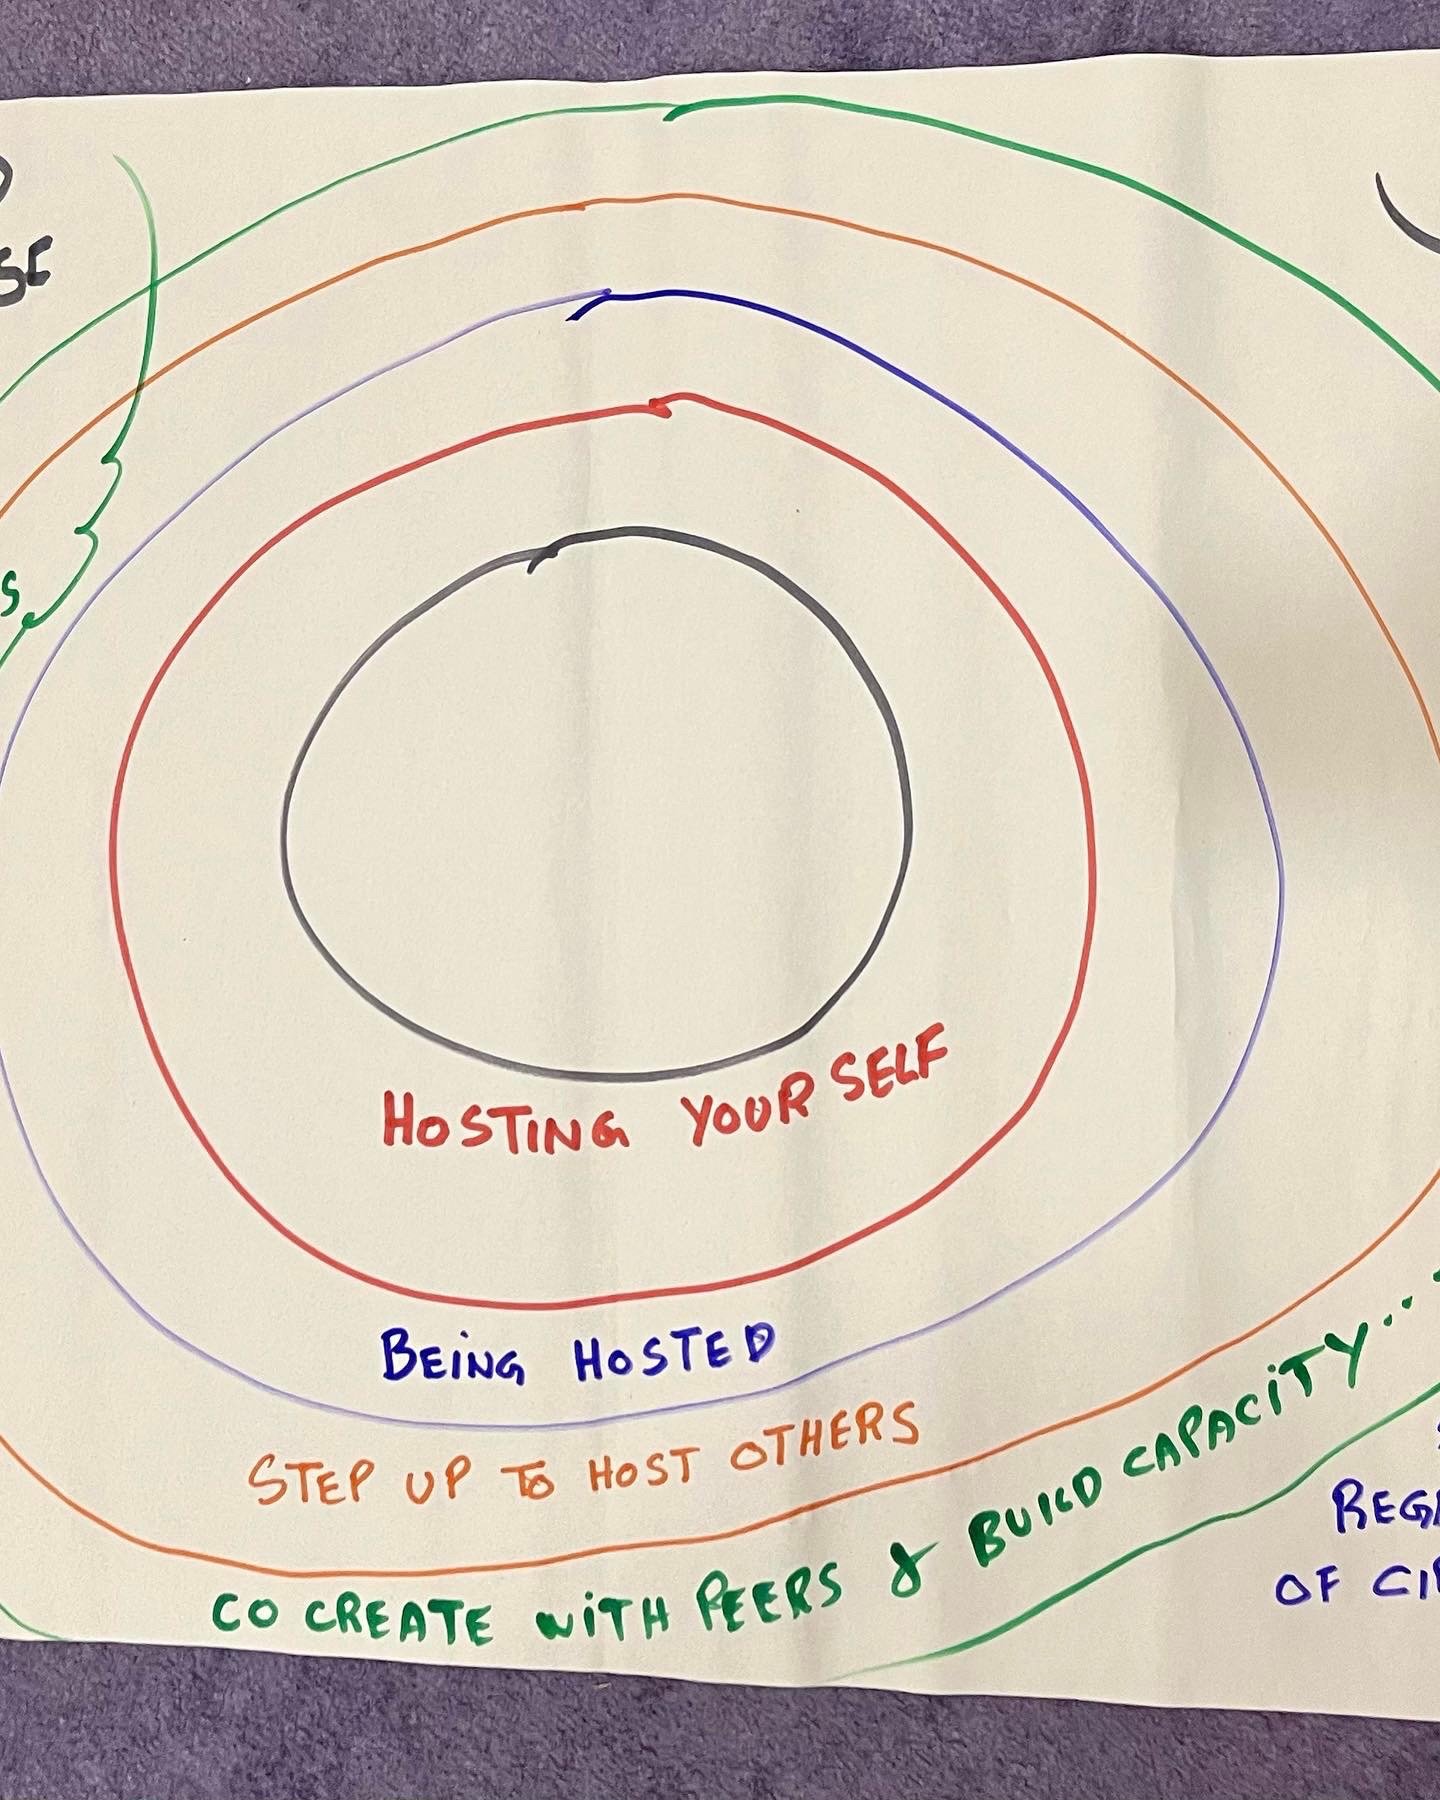 HOSTING YOURSELF
BEING HOSTED
STEP UP TO HOST OTHERS
CO CREATE WITH PEERS & BUILD CAPACITY...
OF